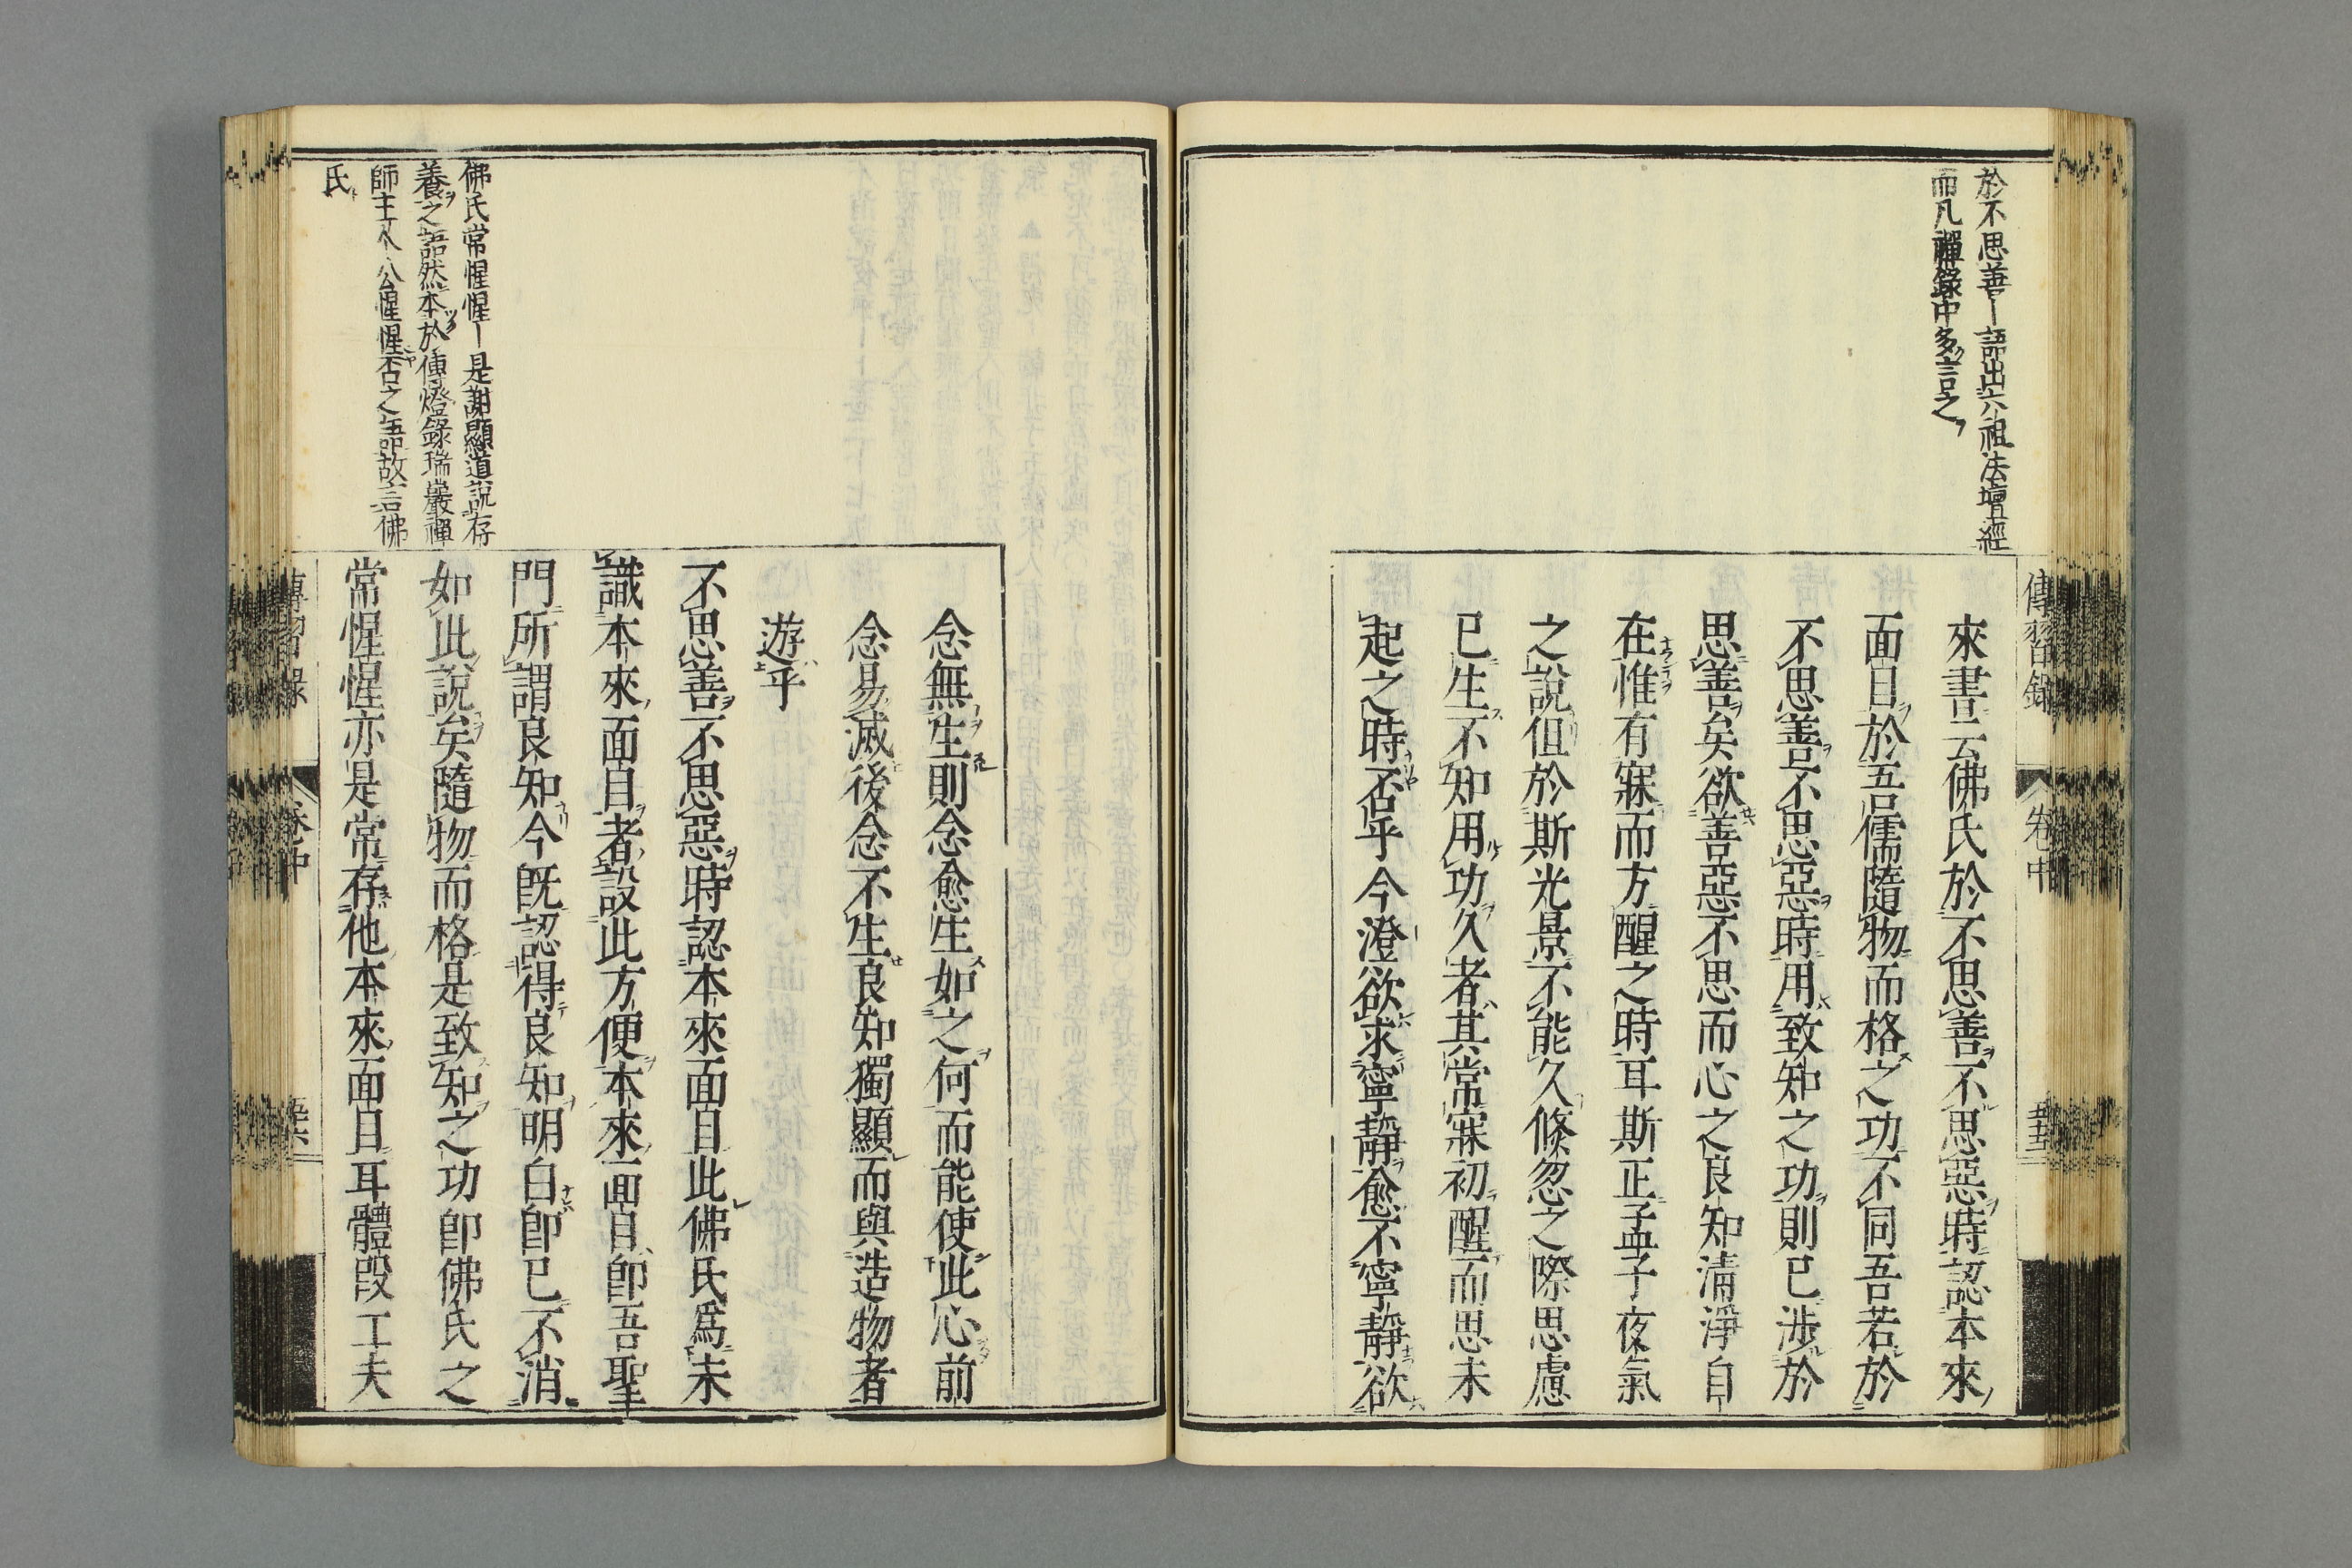 於不思善〡語出六祖法壇經
而凡禪錄中多言之
傳習錄
卷中
來書云佛氏於不思善不思惡時認本來
面目於吾儒隨物而格之功不同吾若於
不思善不思惡時用致知之功則已涉於
思善矣欲善惡不思而心之良知清淨自
在惟有寐而方醒之時耳斯正孟子夜氣
之說但於斯光景不能久倏忽之際思慮
已生不知用功久者其常寐初醒而思未
起之時否乎今澄欲求寧靜愈不寧靜欲
念無生則念愈生如之何而能使此心前
念易滅後念不生良知獨顯而與造物者
遊乎
不思善不思惡時認本來面目此佛氏爲未
識本來面目者設此方便本來面目卽吾聖
門所謂良知今旣認得良知明白卽已不消
如此說矣隨物而格是致知之功卽佛氏之
常惺惺亦是常存他本來面目耳體段工夫
佛氏常惺惺〡是謝顯道說存
養之語然本於傳燈錄瑞巖禪
師主人公惺惺否之語故言佛
氏
傳習錄
卷中